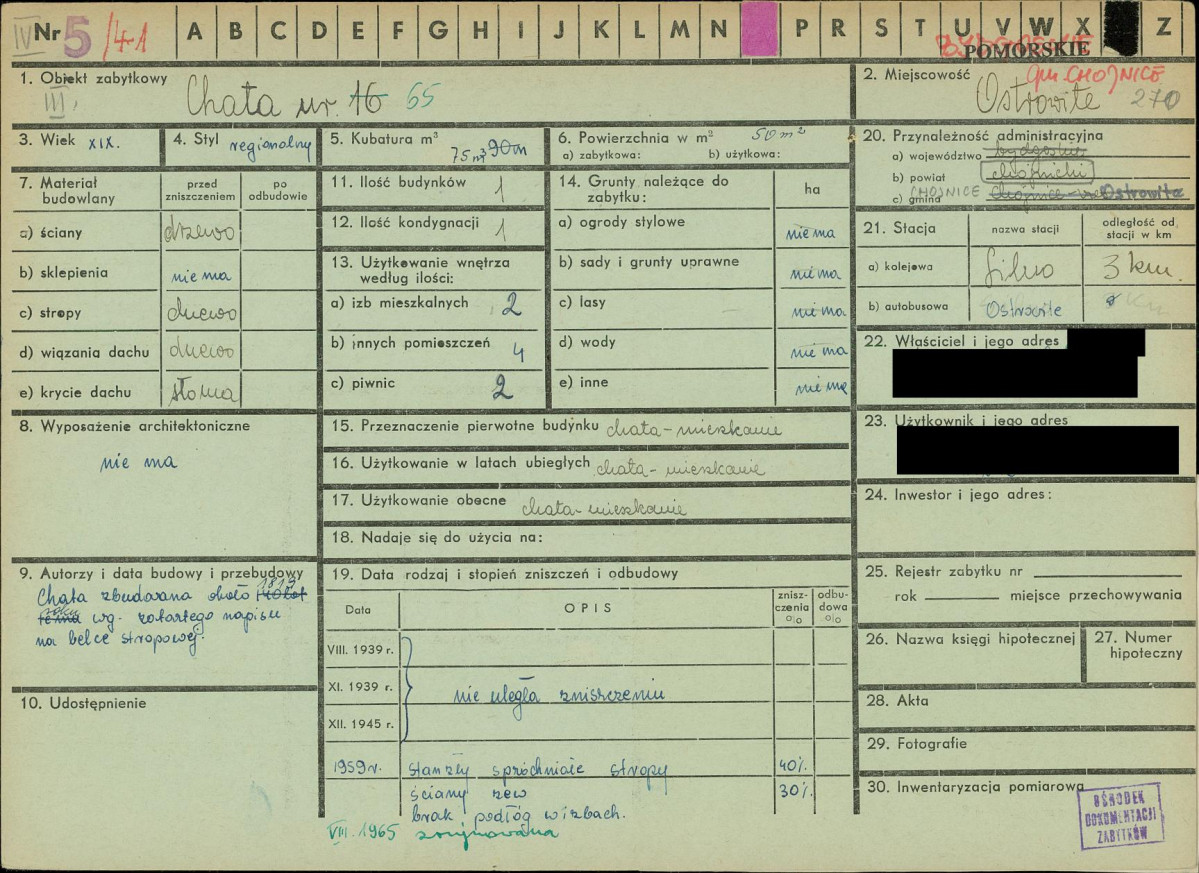 IV Nr 5 /41 A B C D E F G H I J K L M N P R S T U V W X Z
BYDGOSKIE
POMORSKIE
1. Obiekt zabytkowy
III.
Chata nr. 16 55
2. Miejscowość
gm. CHOJNICE
Ostrowite 270
3. Wiek XIX.
4. Styl regionalny
5. Kubatura m³
75 m³ 90m
6. Powierzchnia w m² 50 m²
a) zabytkowa: b) użytkowa:
20. Przynależność administracyjna
a) województwo bydgoskie
b) powiat chojnicki
c) gmina CHOJNICE Chojnice-wieś Ostrowite
7. Materiał budowlany
przed zniszczeniem
po odbudowie
a) ściany drzewo
b) sklepienia nie ma
c) stropy drzewo
d) wiązania dachu drzewo
e) krycie dachu słoma
11. Ilość budynków 1
12. Ilość kondygnacji 1
13. Użytkowanie wnętrza według ilości:
a) izb mieszkalnych 2
b) innych pomieszczeń 4
c) piwnic 2
14. Grunty należące do zabytku:
ha
a) ogrody stylowe nie ma
b) sady i grunty uprawne nie ma
c) lasy nie ma
d) wody nie ma
e) inne nie ma
21. Stacja
nazwa stacji
odległość od stacji w km
a) kolejowa Silno 3 km.
b) autobusowa Ostrowite
22. Właściciel i jego adres
23. Użytkownik i jego adres
24. Inwestor i jego adres:
8. Wyposażenie architektoniczne
nie ma
15. Przeznaczenie pierwotne budynku chata-mieszkanie
16. Użytkowanie w latach ubiegłych chata-mieszkanie
17. Użytkowanie obecne chata-mieszkanie
18. Nadaje się do użycia na:
9. Autorzy i data budowy i przebudowy
Chata zbudowana około 1813
roku wg. zatartego napisu
na belce stropowej.
10. Udostępnienie
19. Data rodzaj i stopień zniszczeń i odbudowy
Data
OPIS
zniszczenia %
odbudowa %
VIII. 1939 r.
XI. 1939 r. nie uległa zniszczeniu
XII. 1945 r.
1959 r. spróchniałe stropy 40%
ściany zew 30%
brak podłóg w izbach.
VIII. 1965 zrujnowana
25. Rejestr zabytku nr
rok miejsce przechowywania
26. Nazwa księgi hipotecznej
27. Numer hipoteczny
28. Akta
29. Fotografie
30. Inwentaryzacja pomiarowa
OŚRODEK
DOKUMENTACJI
ZABYTKÓW